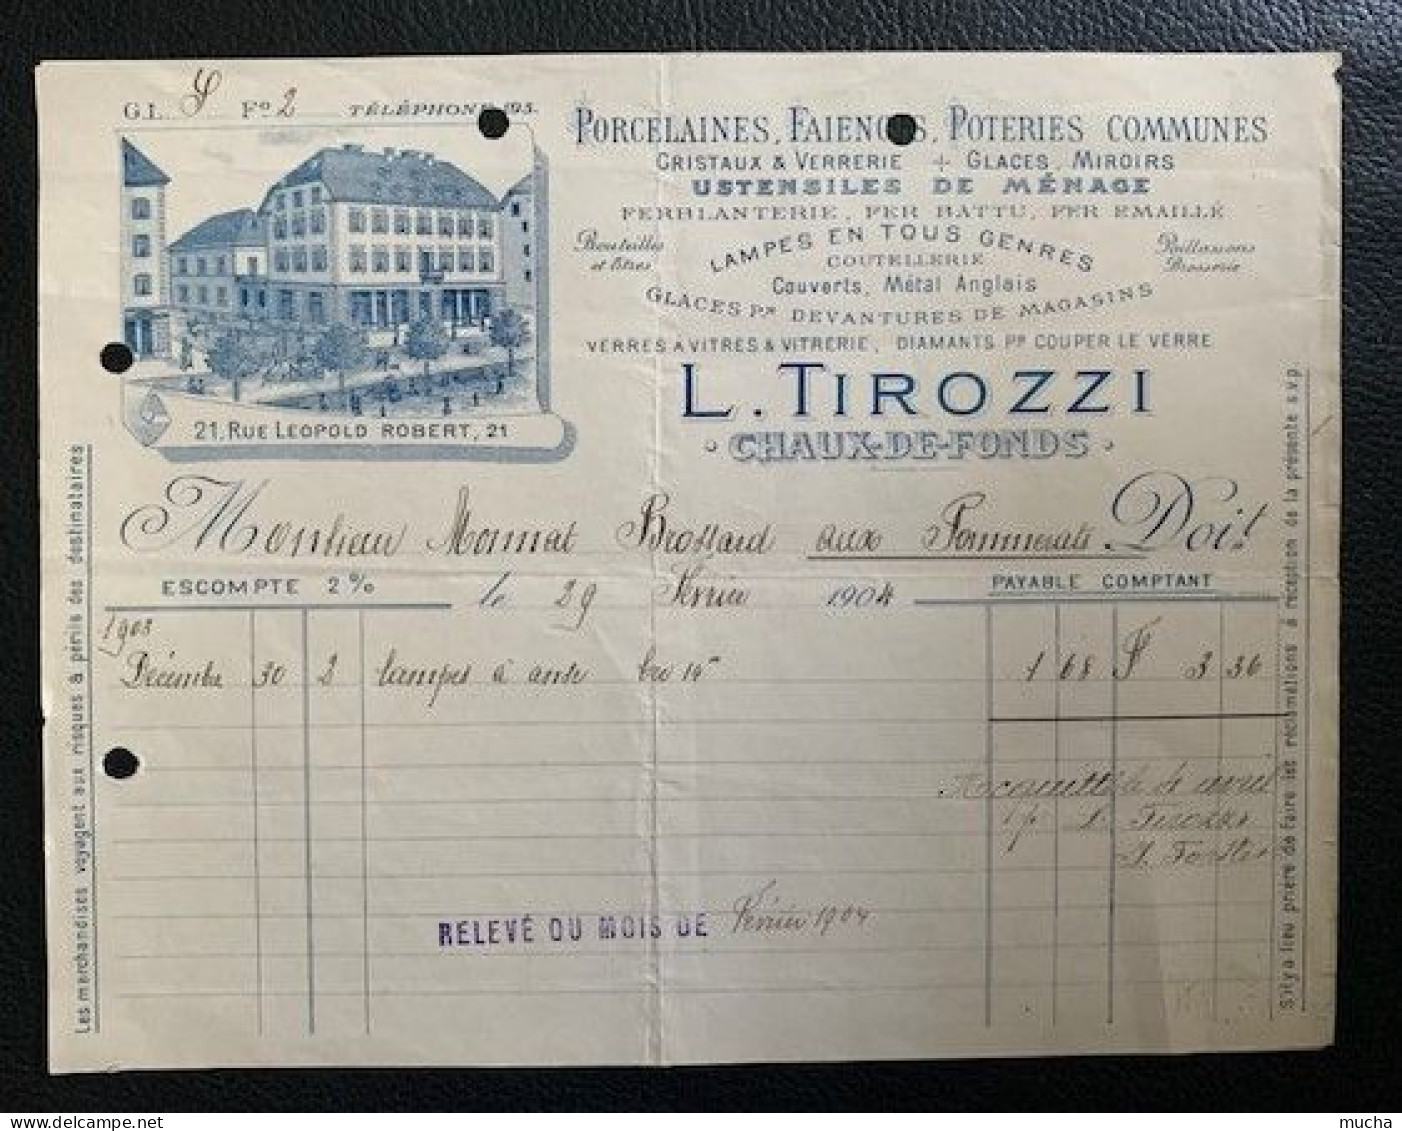 G.L. S Fº 2 TÉLÉPHONE 193.
21, RUE LEOPOLD ROBERT, 21
PORCELAINES, FAIENCES, POTERIES COMMUNES
CRISTAUX & VERRERIE + GLACES, MIROIRS
USTENSILES DE MÉNAGE
FERBLANTERIE, FER BATTU, FER EMAILLÉ
Bouteilles et litres
LAMPES EN TOUS GENRES
Paillassons Brosserie
COUTELLERIE
Couverts, Métal Anglais
GLACES Pr DEVANTURES DE MAGASINS
VERRES A VITRES & VITRERIE, DIAMANTS Pr COUPER LE VERRE
L. TIROZZI
CHAUX-DE-FONDS
Monsieur Monnat Brossard aux Pommerats Doit
ESCOMPTE 2% le 29 Février 1904 PAYABLE COMPTANT
1903
Décembre 30 2 lampes à anse 14" 1 68 F 3 36
Acquitté le 4 avril
p. L. Tirozzi
RELEVÉ DU MOIS DE Février 1904
Les marchandises voyagent aux risques & périls des destinataires
S'il y a lieu prière de faire les réclamations à réception de la présente s.v.p.
mucha